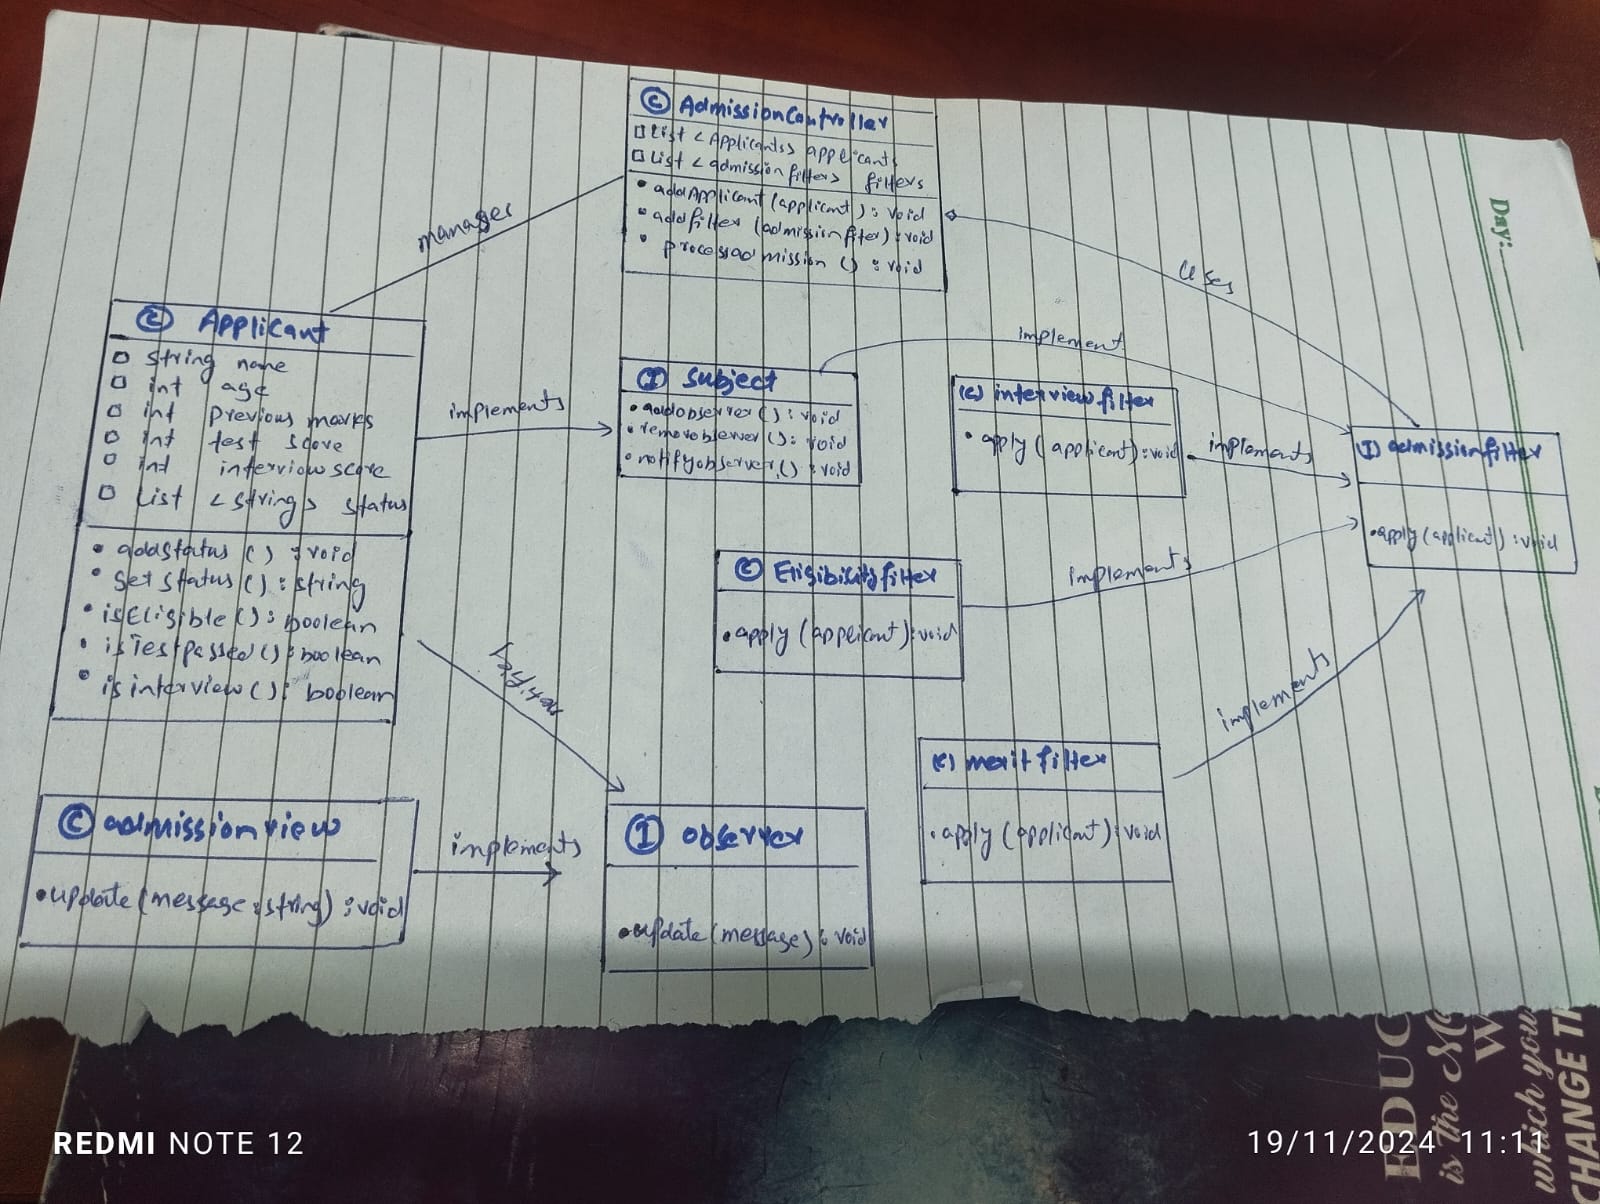 Ⓒ AdmissionController
List < Applicants> applicants
List < admission filters> filters
• addApplicant (applicant) : void
• addfilter (admissionfilter) : void
• processadmission () : void
manages
uses
Ⓒ Applicant
string name
int age
int previous marks
int test score
int interview score
List <string> status
• addstatus () : void
• Set status () : string
• isEligible () : boolean
• isTestpassed () : boolean
• is interview () : boolean
implements
(I) Subject
• addobserver () : void
• removobserver () : void
• notifyobserver () : void
implement
(c) interview filter
• apply (applicant) : void
implements
(I) admissionfilter
• apply (applicant) : void
Ⓒ Eligibility filter
• apply (applicant) : void
implements
(c) merit filter
• apply (applicant) : void
implements
Ⓒ admission view
• update (message : string) : void
implements
(I) observer
• update (message) : void
Day:
EDUC
is the
which you
CHANGE TH
REDMI NOTE 12
19/11/2024 11:11